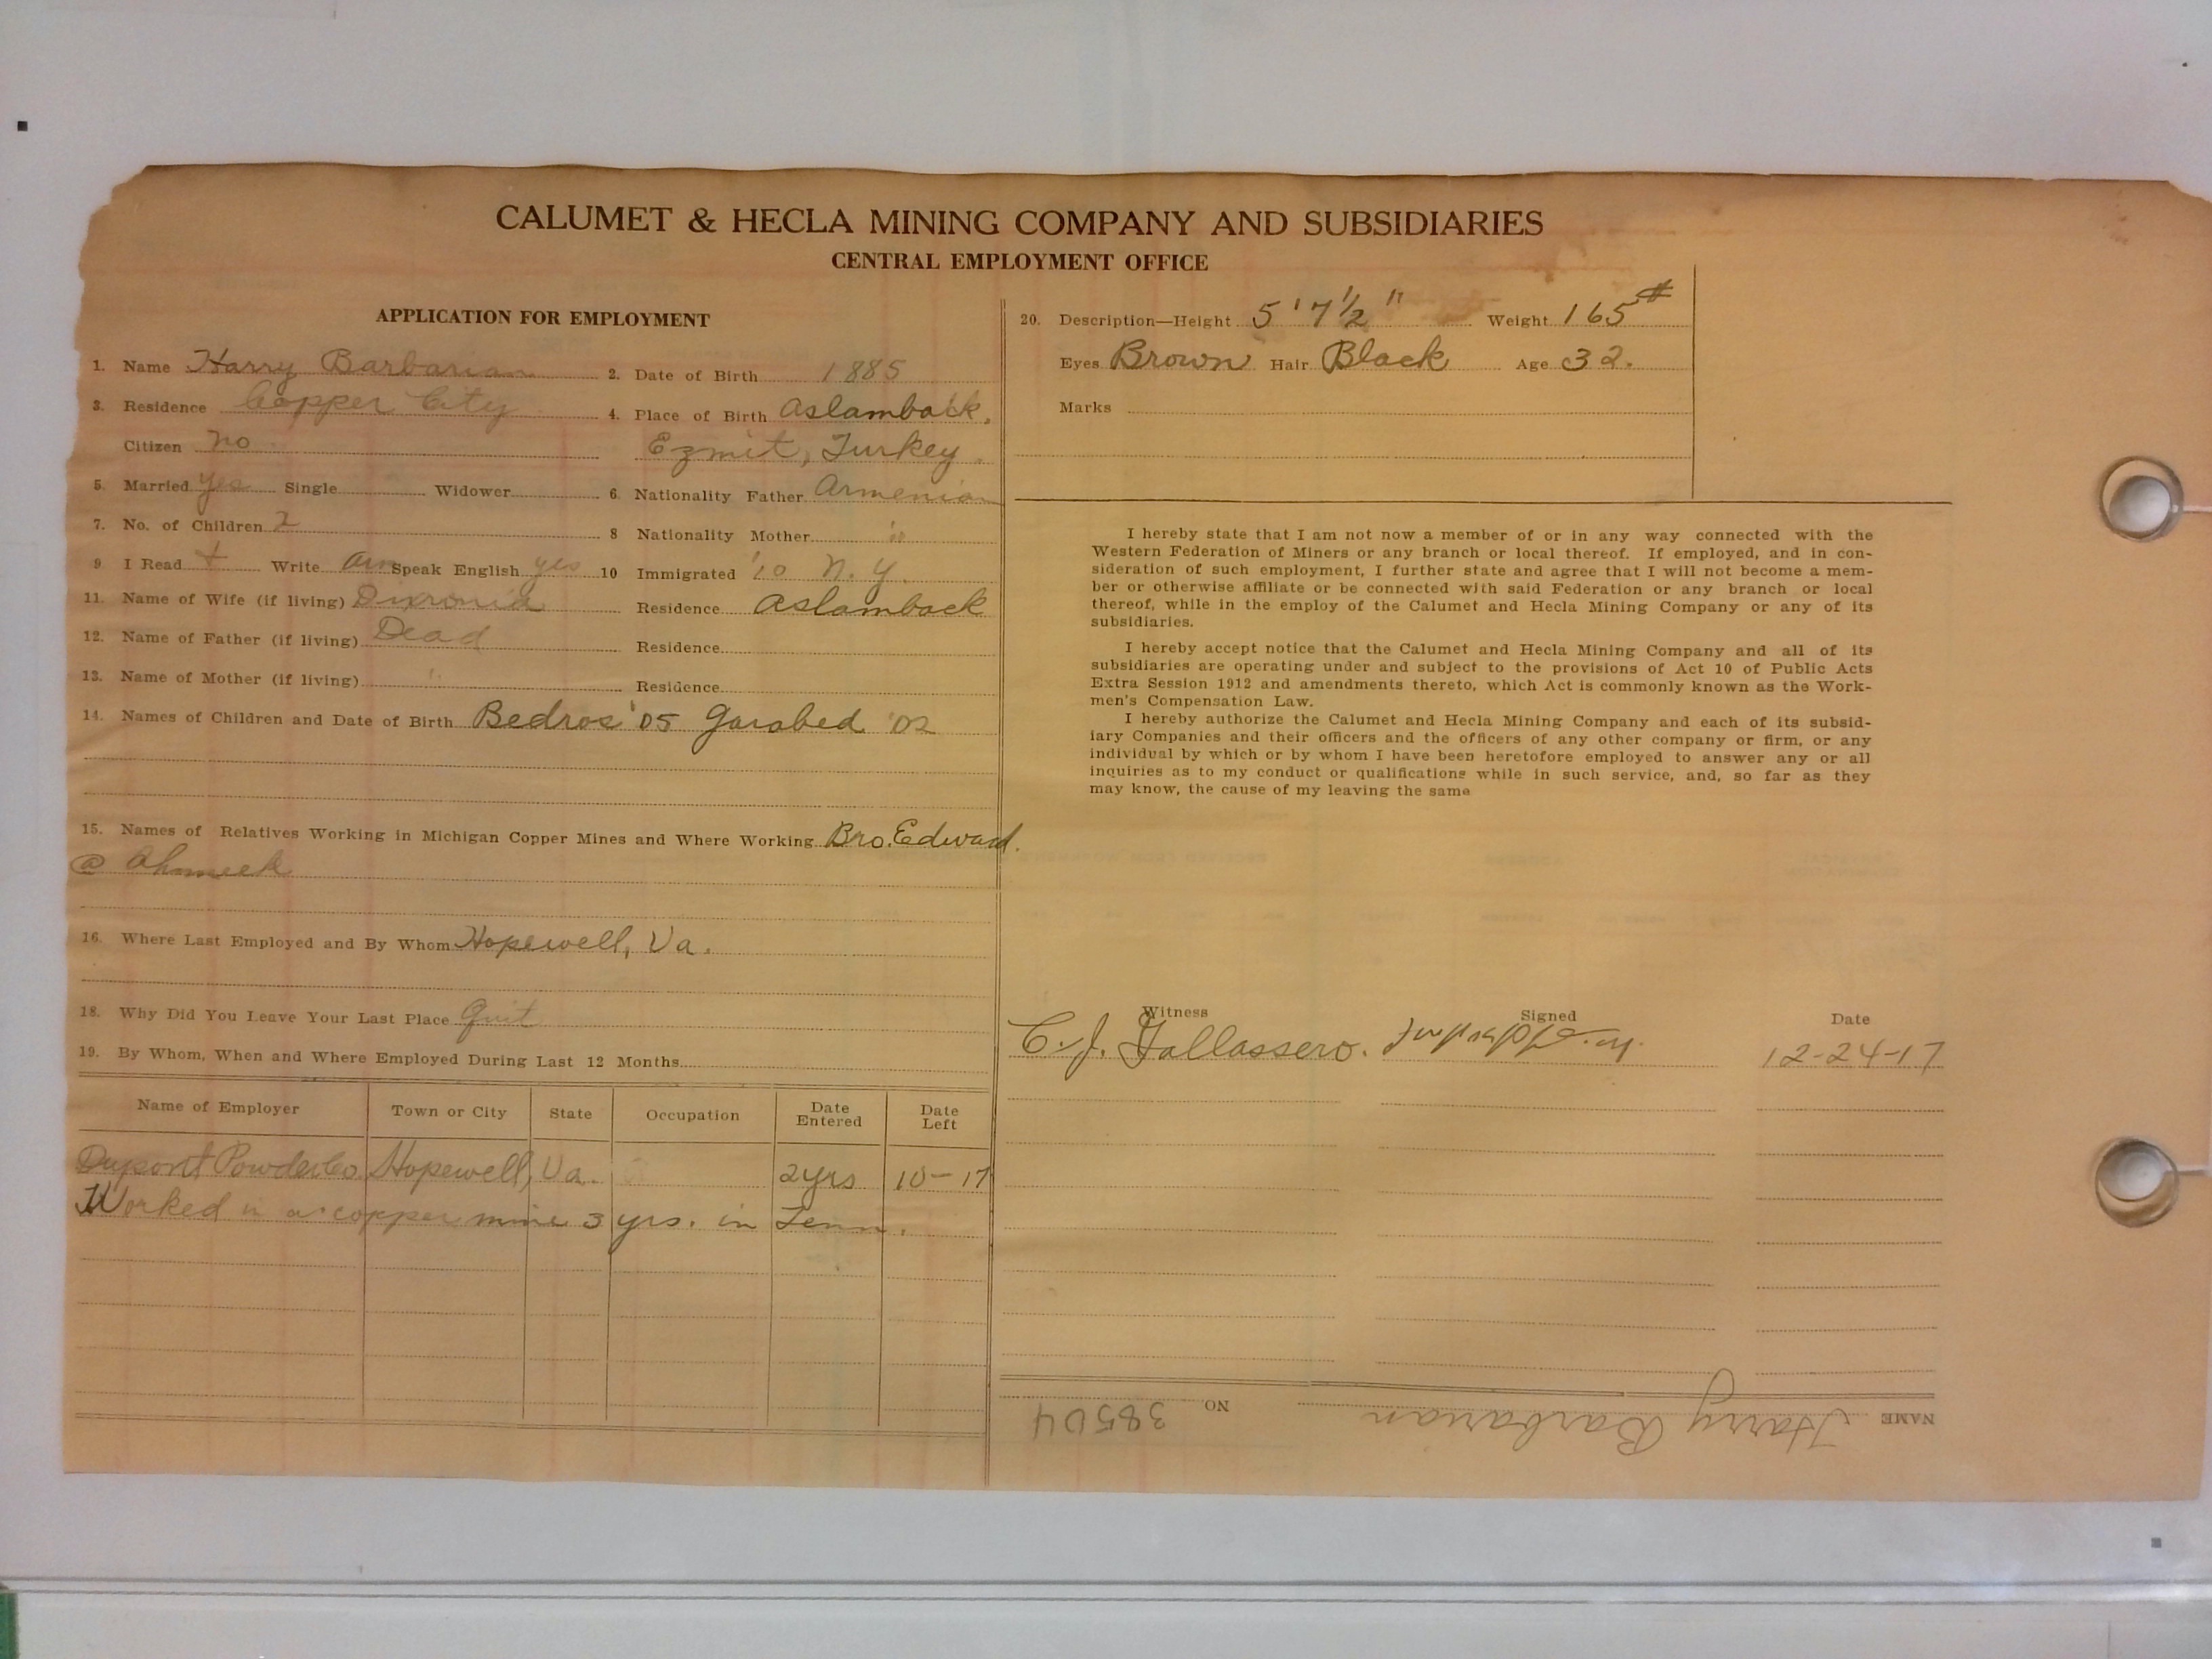 CALUMET & HECLA MINING COMPANY AND SUBSIDIARIES
CENTRAL EMPLOYMENT OFFICE
APPLICATION FOR EMPLOYMENT
1. Name Harry Barbarian 2. Date of Birth 1885
3. Residence Copper City 4. Place of Birth Aslamback,
Citizen no Ezmit, Turkey.
5. Married yes Single Widower 6. Nationality Father Armenian
7. No. of Children 2 8 Nationality Mother "
9 I Read + Write Arm Speak English yes 10 Immigrated '10 N.Y.
11. Name of Wife (if living) Residence Aslamback
12. Name of Father (if living) Dead Residence
13. Name of Mother (if living) " Residence
14. Names of Children and Date of Birth Bedros '05 Garabed '02
15. Names of Relatives Working in Michigan Copper Mines and Where Working Bro. Edward.
@ Ahmeek
16. Where Last Employed and By Whom Hopewell, Va.
18. Why Did You Leave Your Last Place Quit
19. By Whom, When and Where Employed During Last 12 Months
Name of Employer Town or City State Occupation Date Entered Date Left
Dupont Powder Co. Hopewell, Va. 2 yrs 10-17
Worked in a copper mine 3 yrs. in Tenn.
20. Description—Height 5' 7 1/2" Weight 165#
Eyes Brown Hair Black Age 32.
Marks
I hereby state that I am not now a member of or in any way connected with the
Western Federation of Miners or any branch or local thereof. If employed, and in con-
sideration of such employment, I further state and agree that I will not become a mem-
ber or otherwise affiliate or be connected with said Federation or any branch or local
thereof, while in the employ of the Calumet and Hecla Mining Company or any of its
subsidiaries.
I hereby accept notice that the Calumet and Hecla Mining Company and all of its
subsidiaries are operating under and subject to the provisions of Act 10 of Public Acts
Extra Session 1912 and amendments thereto, which Act is commonly known as the Work-
men's Compensation Law.
I hereby authorize the Calumet and Hecla Mining Company and each of its subsid-
iary Companies and their officers and the officers of any other company or firm, or any
individual by which or by whom I have been heretofore employed to answer any or all
inquiries as to my conduct or qualifications while in such service, and, so far as they
may know, the cause of my leaving the same
Witness Signed Date
C. J. 12-24-17
NAME Harry Barbarian NO 38504